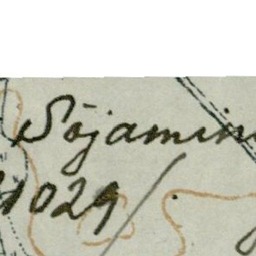 Sõjamini
1029/.